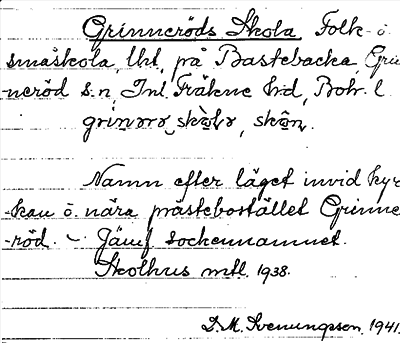 Grinneröds Skola Folk- o.
småskola, lht, på Bastebacka, Grin
-neröd sn, Inl. Fräkne hd, Boh. l.
skọ̀lɑ, skộn.
Namn efter läget invid kyr
kan o. nära prästebostället Grinne
-röd. ~ Jämf sockennamnet.
Skolhus mtl. 1938.
D. M. Svenungsson, 1941.